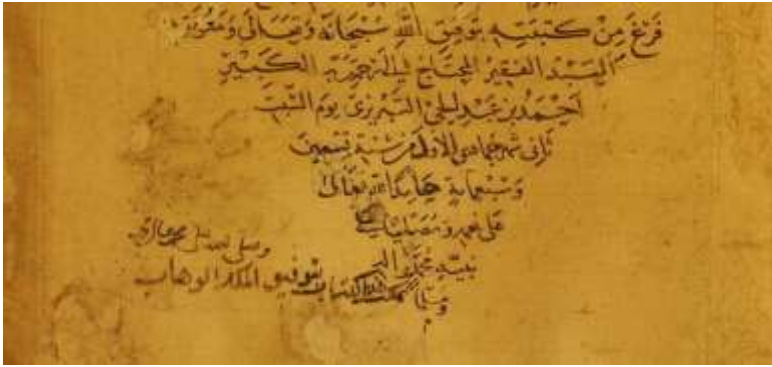 فَرَغَ مِنْ كَتْبَتِهِ بِتَوْفِيقِ اللَّهِ سُبْحَانَهُ وَتَعَالَى وَمَعُونَتِهِ
العَبْدُ الفَقِيرُ المُحْتَاجُ إِلَى رَحْمَةِ الكَبِيرِ
أَحْمَدُ بن عَبْدِ التَّبْرِيزِيّ يَوْمَ السَّبْتِ
ثَانِي شَهْرِ جُمَادَى الأُولَى مِنْ سَنَةِ تِسْعِينَ
وَسَبْعِمَايَةٍ حَامِدًا لله تَعَالَى
عَلَى نِعَمِهِ وَمُصَلِّيًا عَلَى
نَبِيِّهِ مُحَمَّدٍ وَآلِهِ
الكتاب بتوفيق الملك الوهاب